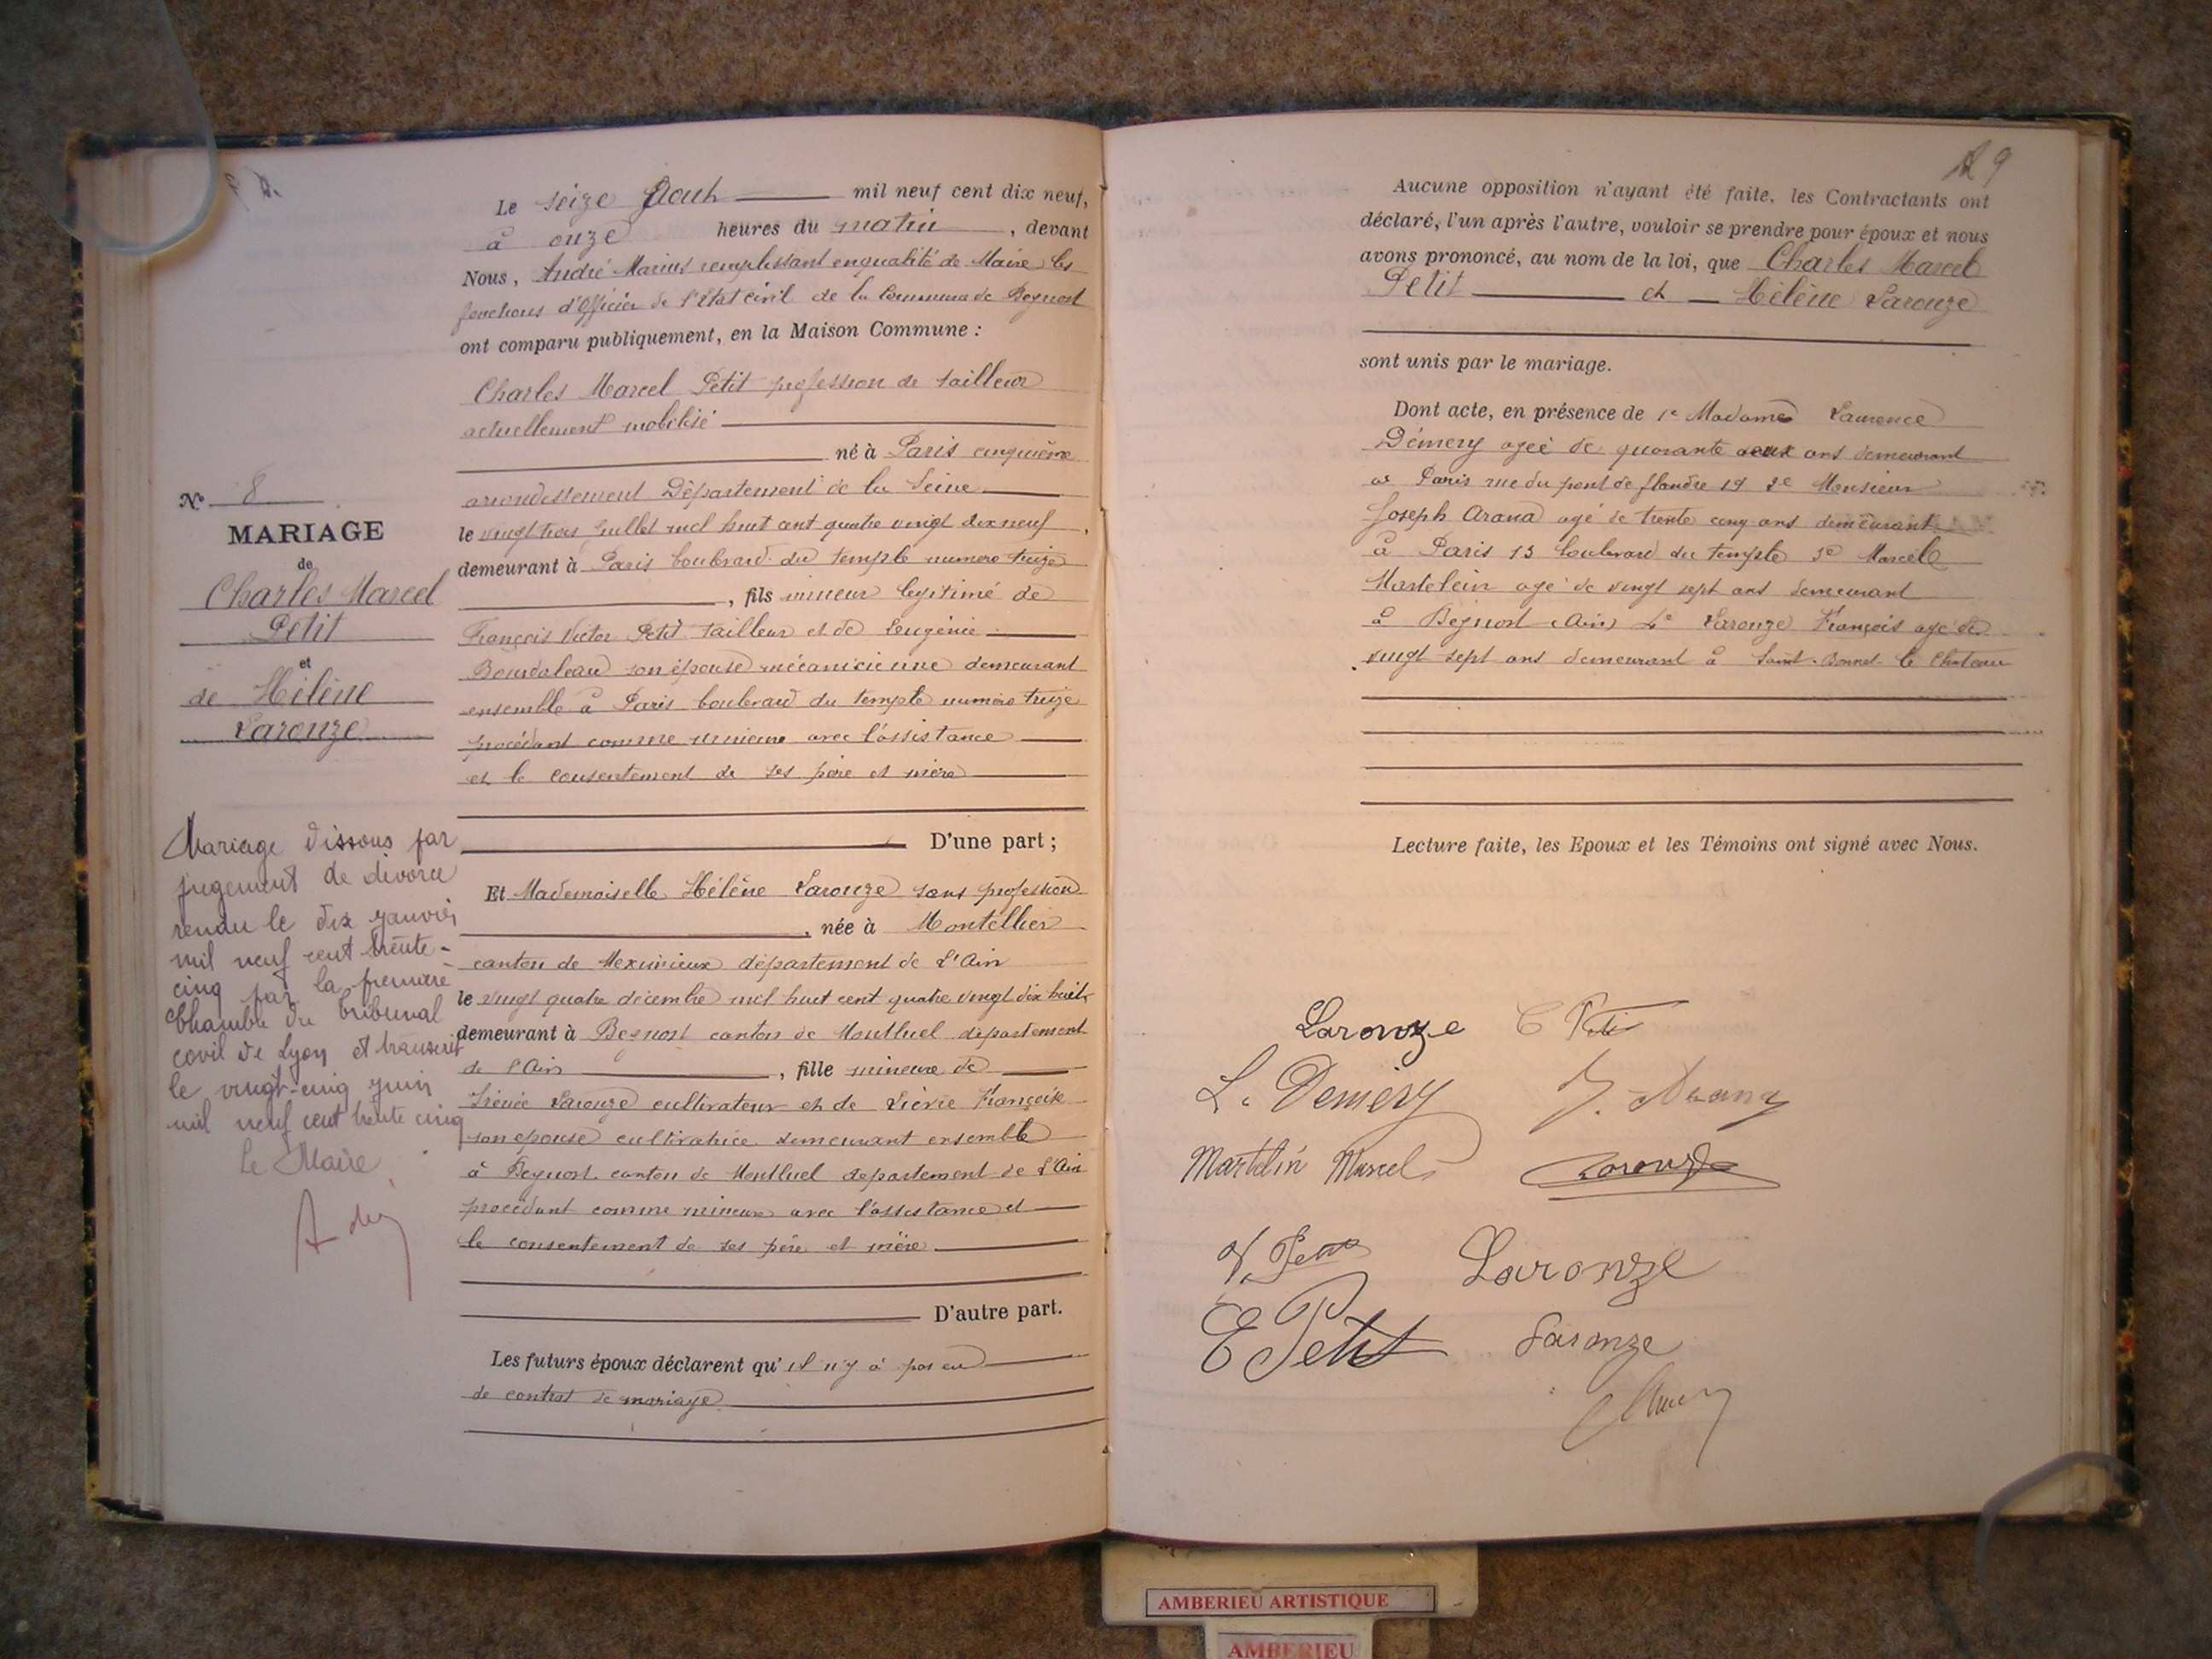 Le seize Août mil neuf cent dix neuf,
à onze heures du matin, devant
Nous, André Marius remplissant en qualité de Maire les
fonctions d'Officier de l'Etat civil de la Commune de Beynost
ont comparu publiquement, en la Maison Commune :
Charles Marcel Petit profession de tailleur
actuellement mobilisé
né à Paris cinquième
arrondissement Département de la Seine
le vingt trois juillet mil huit cent quatre vingt dix neuf,
demeurant à Paris boulevard du temple numero treize
, fils mineur legitimé de
François Victor Petit tailleur et de Eugénie
Bourdaleau son épouse mécanicienne demeurant
ensemble à Paris boulevard du temple numéro treize
procédant comme mineur avec l'assistance
et le consentement de ses père et mère
D'une part ;
Et Mademoiselle Hélène Laronze sans profession
, née à Montellier
canton de Meximieux département de L'Ain
le vingt quatre décembre mil huit cent quatre vingt dix huit,
demeurant à Beynost canton de Montluel département
de l'Ain, fille mineure de
Irénée Laronze cultivateur et de Lievre Françoise
son epouse cultivatrice demeurant ensemble
à Beynost canton de Montluel departement de L'Ain
procédant comme mineure avec l'assistance et
le consentement de ses père et mère
D'autre part.
Les futurs époux déclarent qu'il n'y à pas eu
de contrat de mariage
N° 8
MARIAGE
de
Charles Marcel
Petit
et
de Hélène
Laronze
Mariage dissous par
jugement de divorce
rendu le dix janvier
mil neuf cent trente-
cinq par la première
Chambre du tribunal
civil de Lyon et transcrit
le vingt-cinq juin
mil neuf cent trente cinq
Le Maire
29
Aucune opposition n'ayant été faite, les Contractants ont
déclaré, l'un après l'autre, vouloir se prendre pour époux et nous
avons prononcé, au nom de la loi, que Charles Marcel
Petit et Hélène Laronze
sont unis par le mariage.
Dont acte, en présence de 1e Madame Laurence
Démery agée de quarante deux ans demeurant
à Paris rue du pont de flandre 19 2e Monsieur
Joseph Arana agé de trente cinq ans demeurant
à Paris 13 boulevard du temple 3e Marcel
Martelin agé de vingt sept ans demeurant
à Beynost (Ain) 4e Laronze François agé de
vingt sept ans demeurant à Saint-Bonnet-le Chateau
Lecture faite, les Epoux et les Témoins ont signé avec Nous.
Laronze C Petit
L. Demery J. Arana
Martelin Marcel Laronze
V. Petit Laronze
E Petit Laronze
AMBERIEU ARTISTIQUE
AMBERIEU